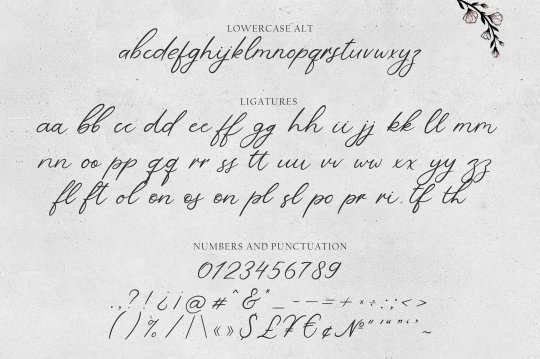 LOWERCASE ALT
abcdefghijklmnopqrstuvwxyz
LIGATURES
aa bb cc dd ee ff gg hh ii jj kk ll mm
nn oo pp qq rr ss tt uu vv ww xx yy zz
fl ft ol on os on pl sl po pr ri tf th
NUMBERS AND PUNCTUATION
0123456789
.,?!¿¡@#^&*_-–=+×÷:;<>
()%/|\«»$£¥€¢№"'“”‘’~